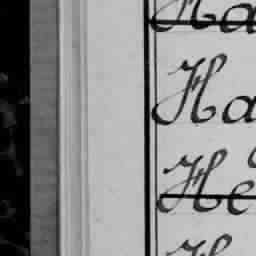 Ha
Ha
He
H